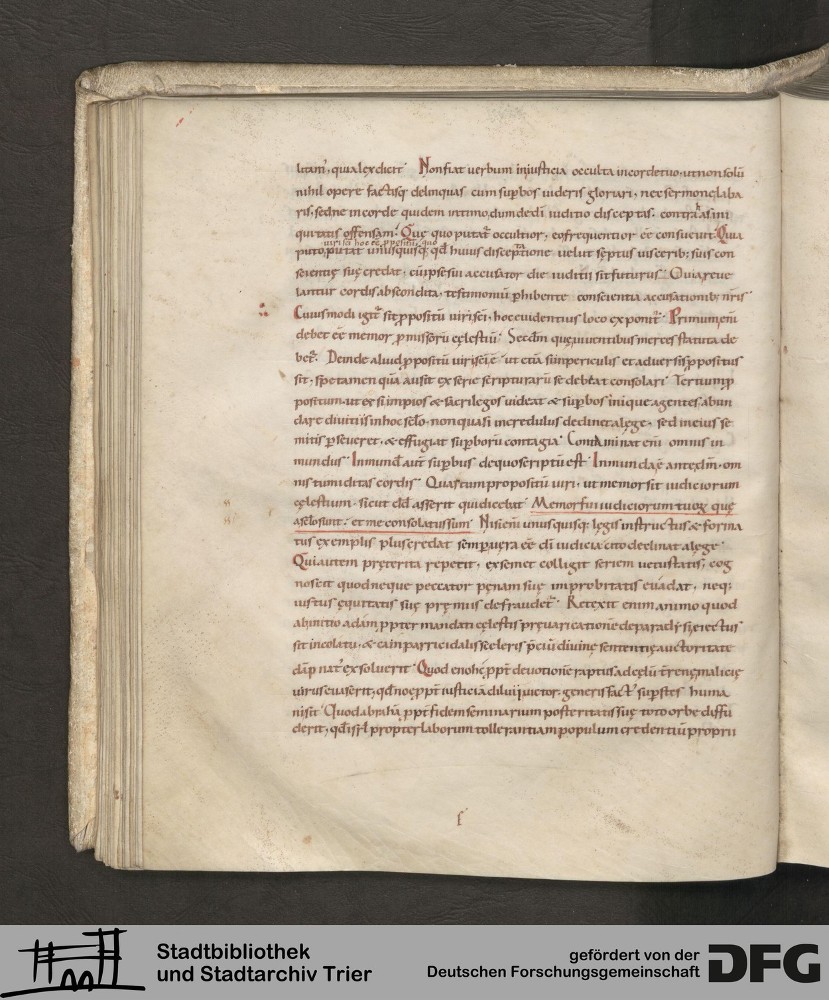 litam, quia lex dicit Non fiat uerbum iniusticia occulta in corde tuo, ut non solū
nihil opere factisq; delinquas cum supbos uideris gloriari, nec sermone laba
ris, sed ne in corde quidem intimo, dum de dī iuditio disceptas. contrahas ini
quitatis offensam. Quę quo putat occultior, eo frequentior ēē consueuit. Quia
puto, putat unusquisq; qd huius disceptatione uelut septus uisceribꝫ suis con
scientię suę credat, cū ipse sui accusator die iuditii sit futurus. Quia reue
lantur cordis abscondita, testimoniū phibente conscientia accusationibꝫ nr̄is
Cuius modi igit sit ppositū uiri sci, hoc euidentius loco exponit. Primum eni
debet ēē memor pmissorū cęlestiū. Secdm quę uiuentibus merces statuta de
bet. Deinde aliud ppositū uiri sci ē ut etiā si in periculis et aduersis ppositus
sit, spe tamen quā ausit ex serie scripturarū se debeat consolari. Tertium p
positum, ut et si impios & sacrilegos uideat & supbos inique agentes abun
dare diuitiis in hoc sclo, non quasi incredulus declinet a lege, sed in eius se
mitis pseueret, & effugiat supborū contagia. Contaminat eni omnis in
mundus. Inmund aut supbus de quo scriptū est Inmunda ē ante dm, om
nis tumiditas cordis. Quartum propositū uiri, ut memor sit iudiciorum
cęlestium, sicut dd asserit qui dicebat Memor fui iudiciorum tuoꝝ quę
a sclo sunt. et me consolatus sum. Nisi eni unusquisq; legis instructus & forma
tus exemplis plus credat semp uera ēē dī iudicia cito declinat a lege
Qui autem pręterita repetit, ex semet colligit seriem uetustatis, cog
noscit quod neque peccator pęnam suę improbitatis euadat, neq;
iustus ęquitatis suę pręmiis defraudet. Retexit enim animo quod
ab initio adam ppter mandati cęlestis pręuaricationē de paradisi eiectus
sit incolatu, & cain parricidalis sceleris pciū diuinę sententię auctoritate
dāpnat exsoluerit Quod enoh ppt deuotionē raptus ad cęlū terrenę malicię
uirus euaserit, qd noe ppt iusticiā diluuii uictor, generis fact supstes huma
ni sit Quod abrahā ppt fidem seminarium posteritatis suę toto orbe diffu
derit, qd isrl propter laborum tollerantiam populum credentiū proprii
Stadtbibliothek
und Stadtarchiv Trier
gefördert von der
Deutschen Forschungsgemeinschaft
DFG